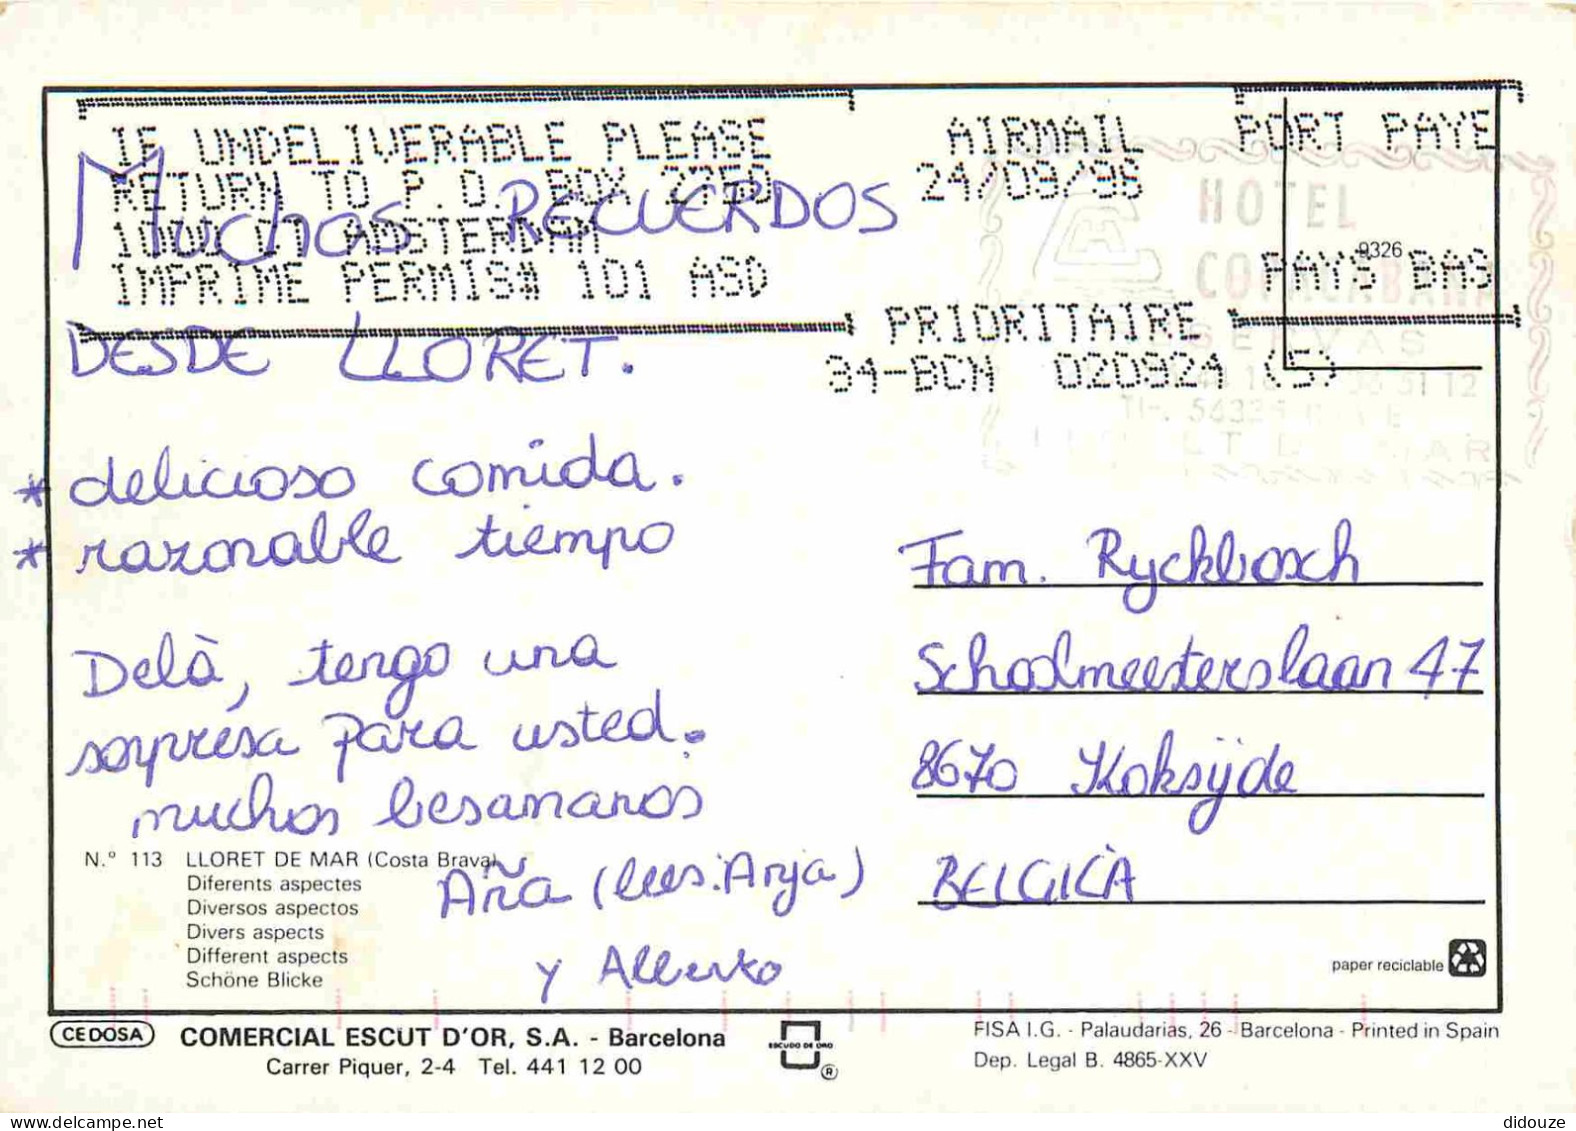 IF UNDELIVERABLE PLEASE
RETURN TO P.O. BOX 2755
AMSTERDAM
IMPRIME PERMIS# 101 ASD
AIRMAIL
24/09/96
PORT PAYE
PAYS BAS
PRIORITAIRE
94-BCN 020924 (5)
HOTEL
COPACABANA
9326
MUCHOS RECUERDOS
DESDE LLORET.
* delicioso comida.
* razonable tiempo
Delà, tengo una
sorpresa para usted.
muchos besamanos
Aña (lees: Anja)
y Alberto
Fam. Ryckbosch
Schoolmeesterslaan 47
8670 Koksijde
BELGICA
N.° 113 LLORET DE MAR (Costa Brava)
Diferents aspectes
Diversos aspectos
Divers aspects
Different aspects
Schöne Blicke
paper reciclable
CEDOSA COMERCIAL ESCUT D'OR, S.A. - Barcelona
Carrer Piquer, 2-4 Tel. 441 12 00
ESCUDO DE ORO
®
FISA I.G. - Palaudarias, 26 - Barcelona - Printed in Spain
Dep. Legal B. 4865-XXV
delcampe.net
didouze